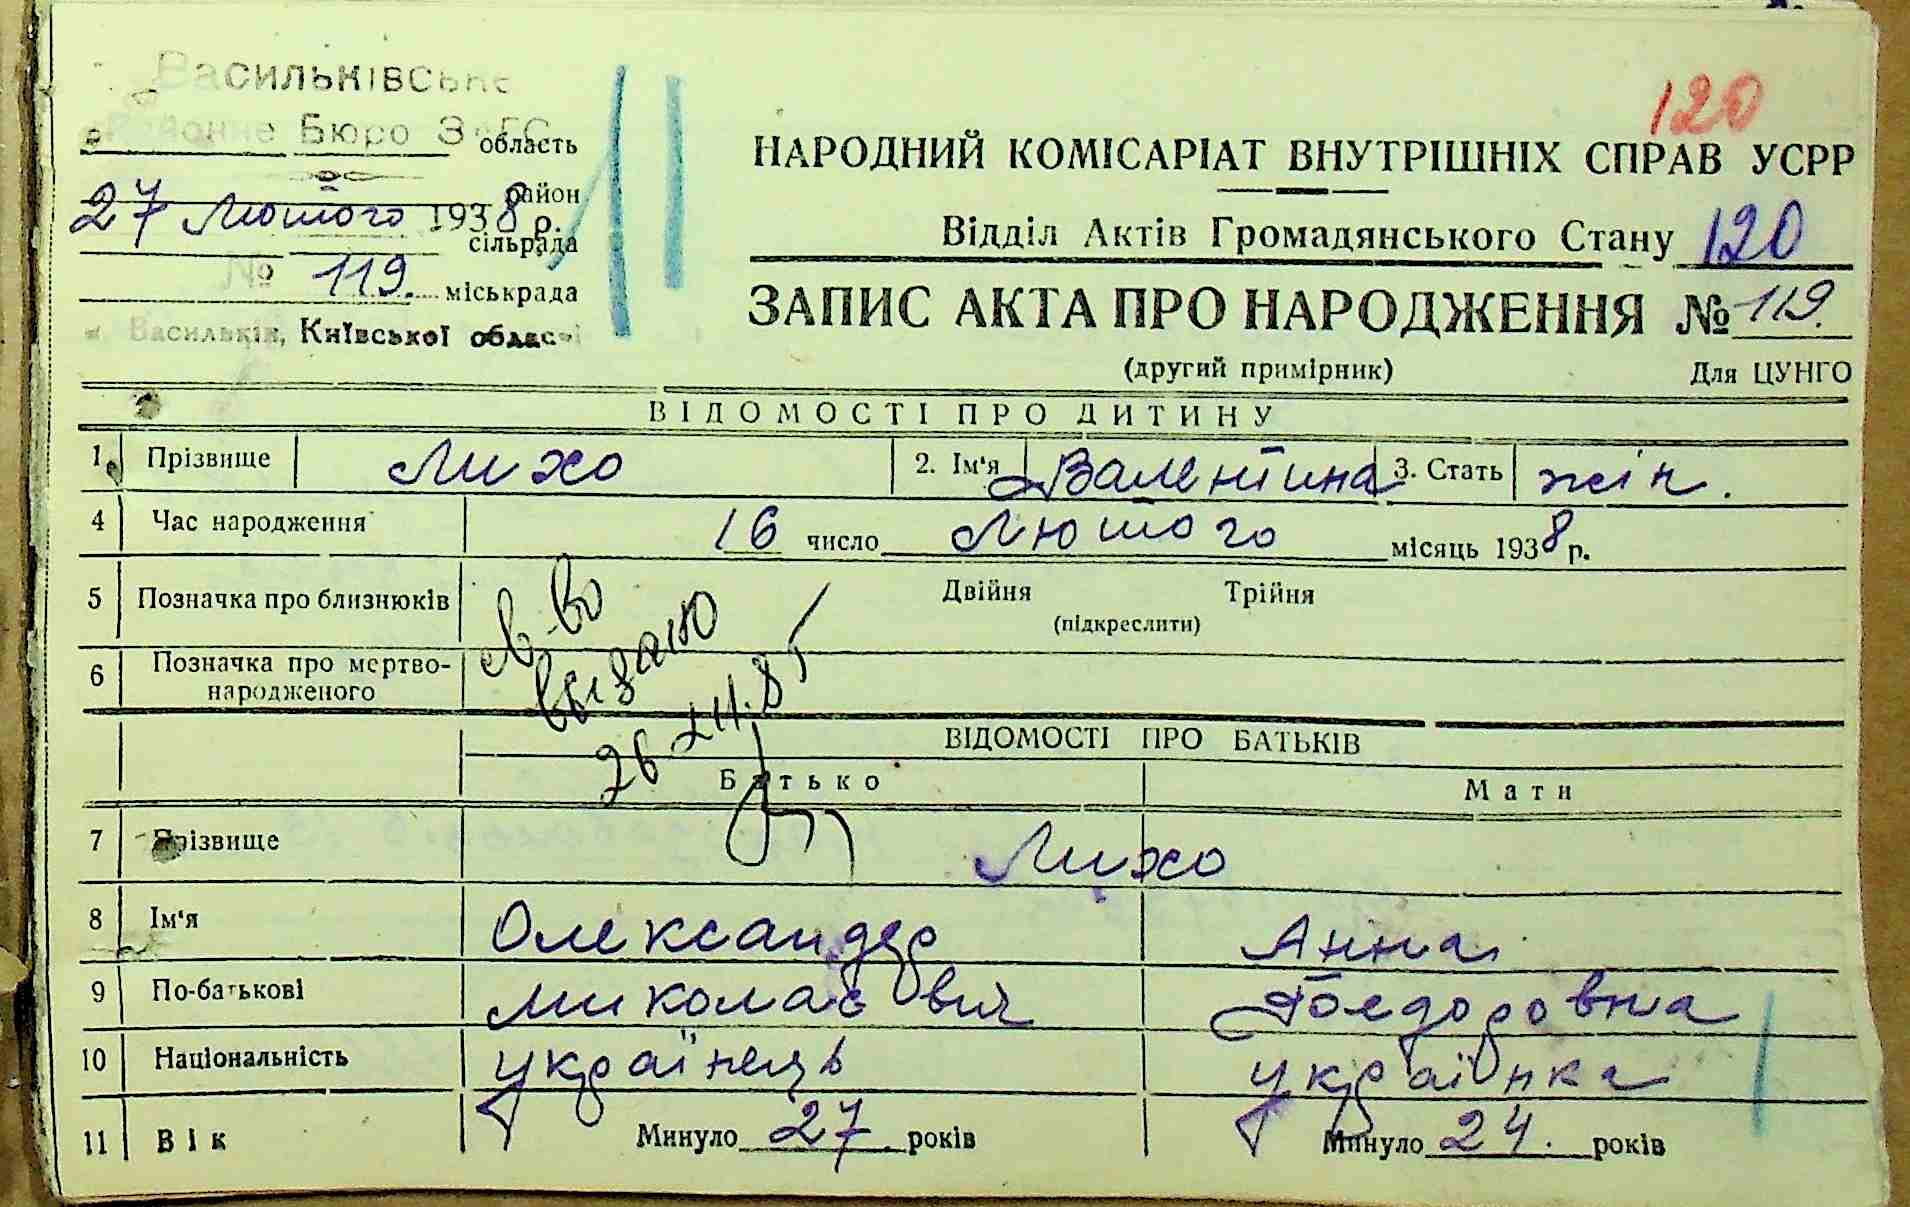 Васильківське
Районне Бюро ЗАГС
область
район
27 Лютого 1938 р.
сільрада
№ 119.
міськрада
м. Васильків, Київської області
120
НАРОДНИЙ КОМІСАРІАТ ВНУТРІШНІХ СПРАВ УСРР
Відділ Актів Громадянського Стану 120
ЗАПИС АКТА ПРО НАРОДЖЕННЯ № 119.
(другий примірник) Для ЦУНГО
ВІДОМОСТІ ПРО ДИТИНУ
1 Прізвище Лихо 2. Ім'я Валентина 3. Стать жін.
4 Час народження 16 число Лютого місяць 1938 р.
5 Позначка про близнюків Двійня Трійня
(підкреслити)
6 Позначка про мертво-
народженого
с-во
выдано
26
ВІДОМОСТІ ПРО БАТЬКІВ
Батько Мати
7 Прізвище Лихо
8 Ім'я Олександер Анна
9 По-батькові Миколаєвич Тоєдоровна
10 Національність українець українка
11 Вік Минуло 27 років Минуло 24. років